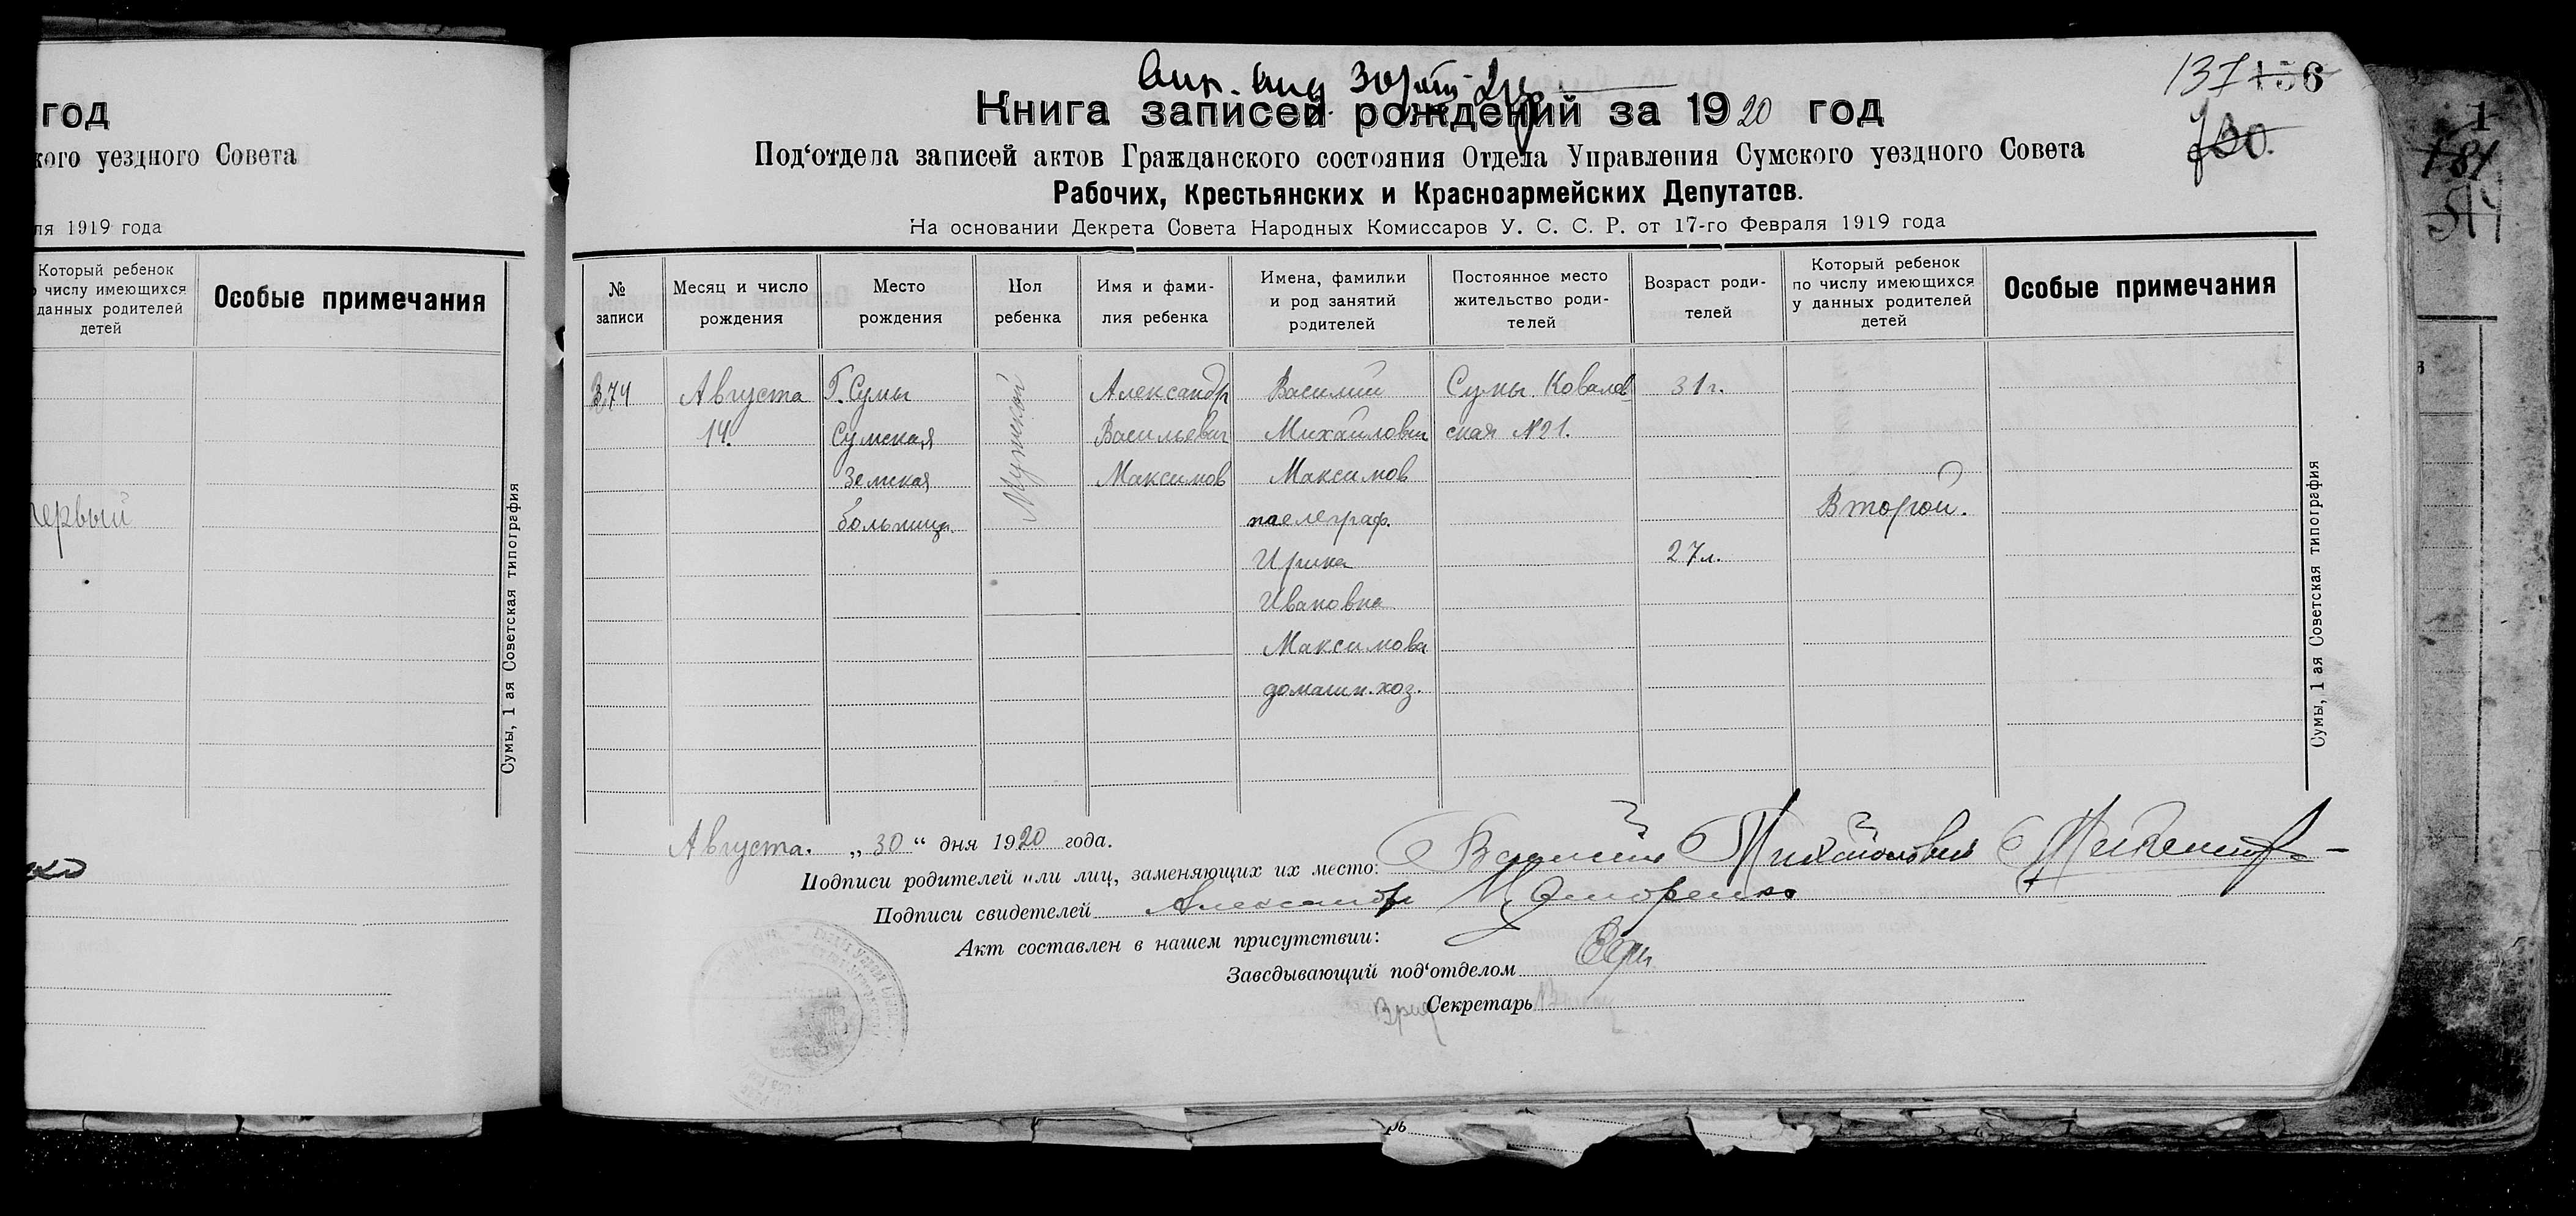 год
кого уездного Совета
ля 1919 года
Который ребенок
о числу имеющихся
данных родителей
детей
Особые примечания
первый
Сумы, 1 ая Советская типография
137 156
730.
Книга записей рождений за 1920 год
Под‘отдела записей актов Гражданского состояния Отдела Управления Сумского уездного Совета
Рабочих, Крестьянских и Красноармейских Депутатов.
На основании Декрета Совета Народных Комиссаров У. С. С. Р. от 17-го Февраля 1919 года
№
записи
Месяц и число
рождения
Место
рождения
Пол
ребенка
Имя и фами-
лия ребенка
Имена, фамилии
и род занятий
родителей
Постоянное место
жительство роди-
телей
Возраст роди-
телей
Который ребенок
по числу имеющихся
у данных родителей
детей
Особые примечания
374
Августа
14.
Г. Сумы
Сумская
Земская
больница.
Мужской
Александр
Васильевич
Максимов
Василий
Михайлович
Максимов
телеграф.
Ирина
Ивановна
Максимова
домашн. хоз.
Сумы. Ковалев-
ская №21.
31 г.
27 л.
Второй.
Сумы, 1 ая Советская типография
Августа. „30“ дня 1920 года.
Подписи родителей или лиц, заменяющих их место: Василий Михайлович
Подписи свидетелей Александр
Акт составлен в нашем присутствии:
Заведывающий под‘отделом
Врид Секретарь
1
181
514